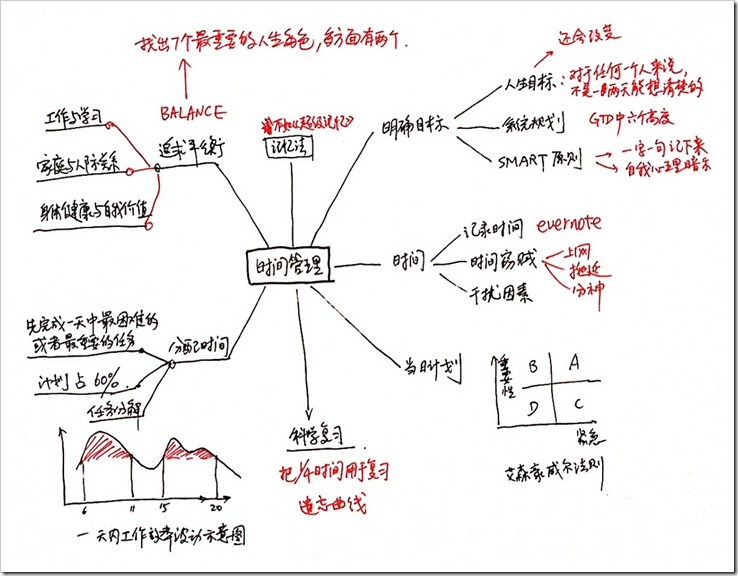 找出7个最重要的人生角色,每方面有两个.
BALANCE
追求平衡
工作与学习
家庭与人际关系
身体健康与自我价值
《超级记忆》
记忆法
还会改变
明确目标
人生目标:对于任何一个人来说,
不是一两天能想清楚的
系统规划 GTD中六个高度
SMART原则
一字一句记下来
自我心理暗示
时间管理
时间
记录时间 evernote
时间窃贼
上网
拖延
分神
干扰因素
当日计划
重要性
B A
D C
紧急
艾森豪威尔法则
分配时间
先完成一天中最困难的
或者最重要的任务
计划占60%.
任务分解
科学复习
把1/4时间用于复习
遗忘曲线
6 11 15 20
一天内工作效率波动示意图